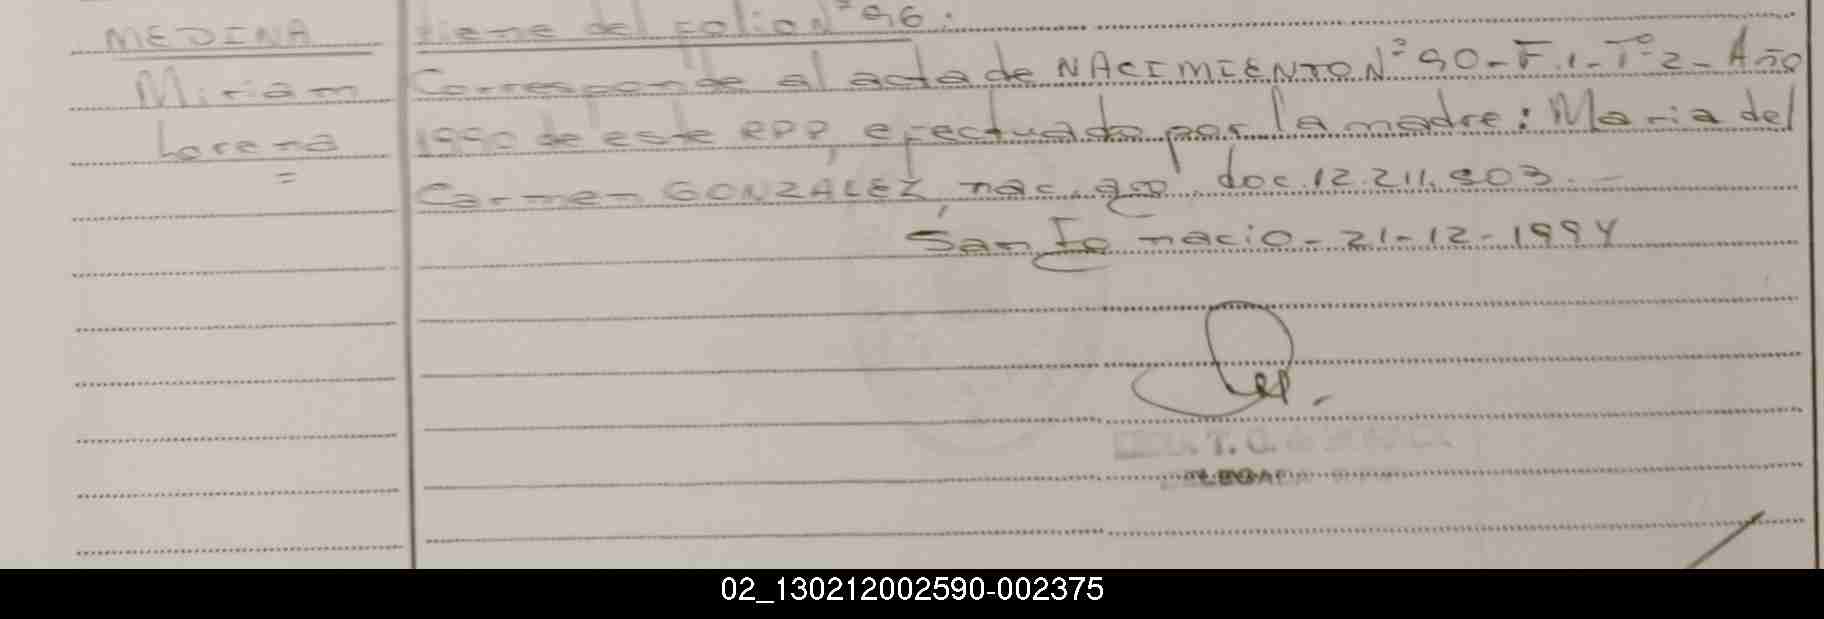 MEDINA
Miriam
Lorena
=
Viene del folio Nº 96.
Corresponde al acta de NACIMIENTO Nº 90-F.1-Tº2-Año
1990 de este RPP, efectuado por la madre: Maria del
Carmen GONZÁLEZ, nac. doc. 12.211.903.-
Santa Fe nacio-21-12-1994
02_130212002590-002375